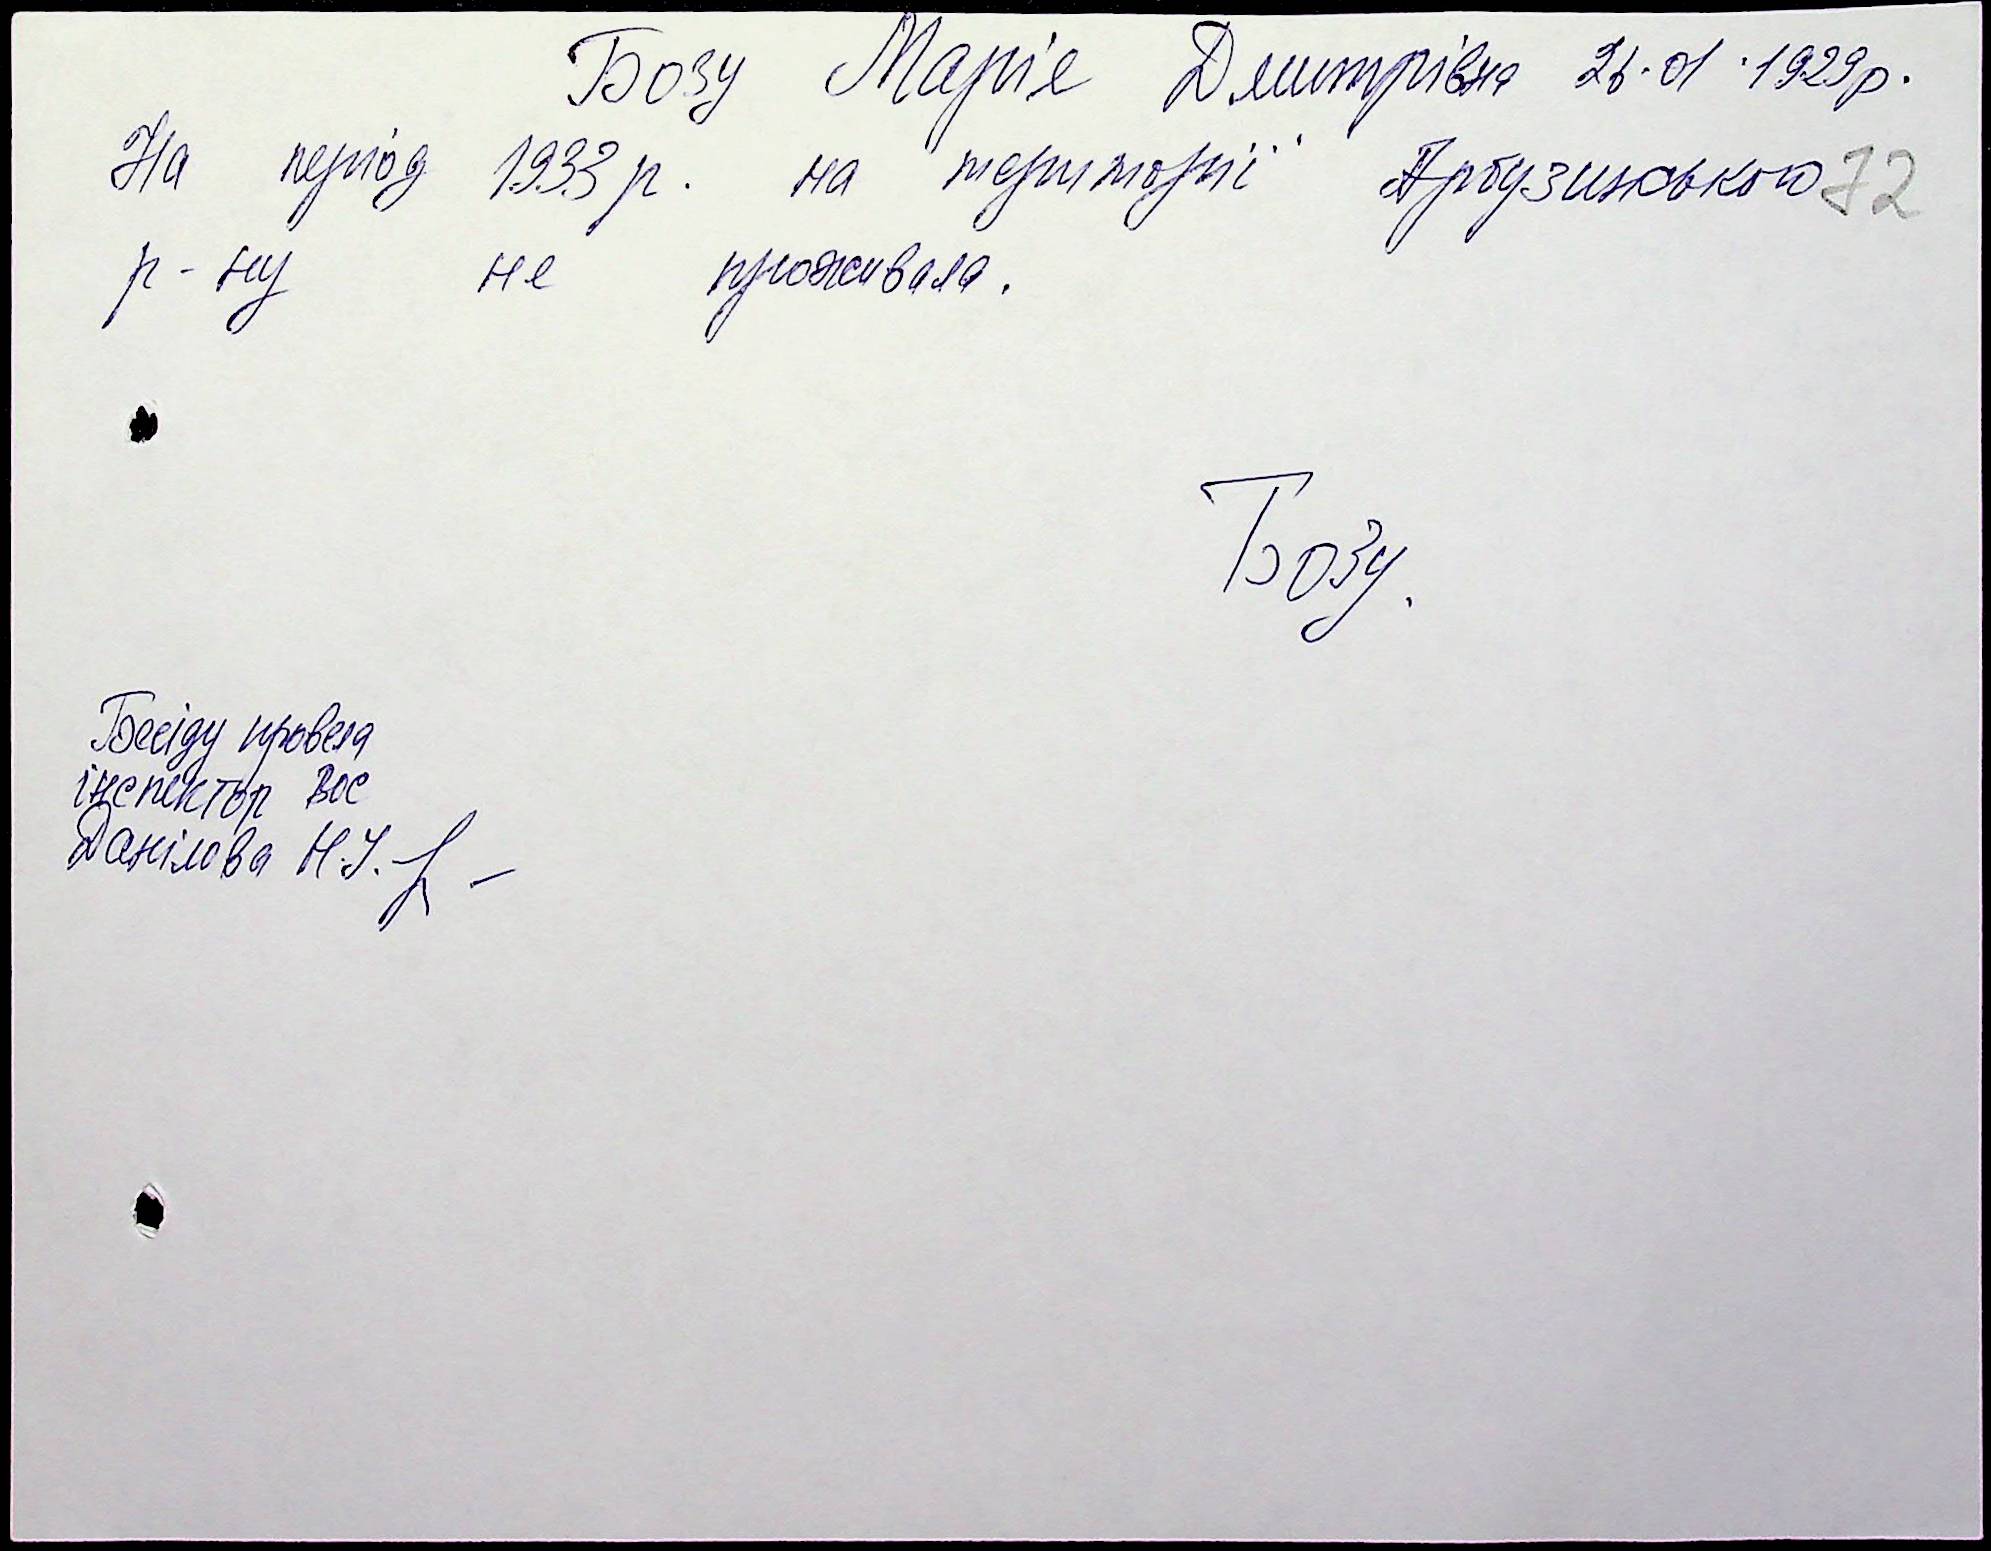 Бозу Марія Дмитрівна 26.01.1929р.
На період 1933 р. на території Арбузинського 72
р-ну не проживала.
Бозу.
Бесіду провела
інспектор ВОС
Данілова Н.І.